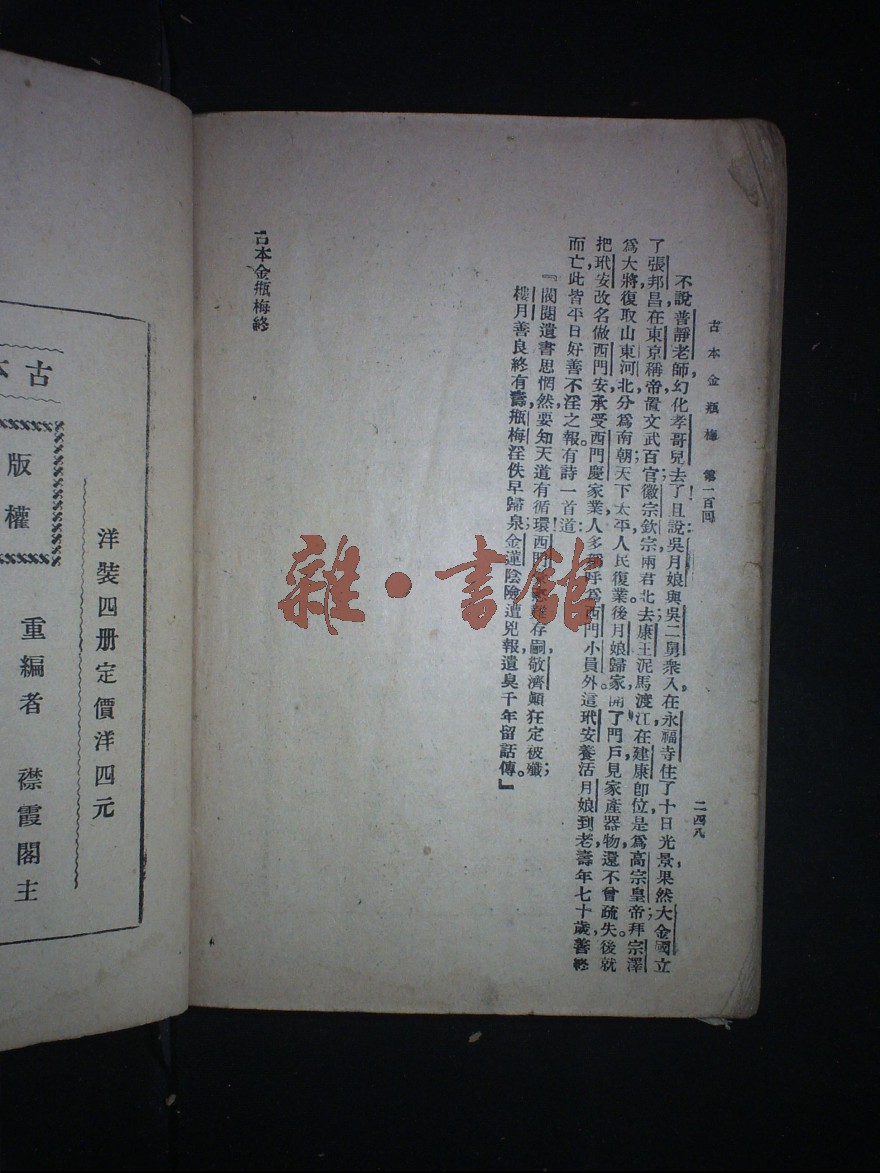 古本金瓶梅 第一百回 二四八
不說普靜老師,幻化孝哥兒去了!且說吳月娘與吳二舅衆人,在永福寺住了十日光景,果然大金國立
了張邦昌在東京稱帝,置文武百官;徽宗欽宗兩君北去,康王泥馬渡江,在建康卽位,是爲高宗皇帝;拜宗澤
爲大將,復取山東河北,分爲南朝,天下太平,人民復業。後月娘歸家,開了門戶,見家產器物,還不曾疏失。後就
把玳安改名做西門安,承受西門慶家業,人多都呼爲西門小員外。這玳安養活月娘到老,壽年七十歲,善終
而亡,此皆平日好善不淫之報。有詩一首道:
『閥閱遺書思惘然,要知天道有循環,西門 存嗣,敬濟顛狂定被殲;
樓月善良終有壽,瓶梅淫佚早歸泉,金蓮陰險遭兇報,遺臭千年留話傳。』
古本金瓶梅終
雜·書館
古本
版權
洋裝四册定價洋四元
重編者 襟霞閣主